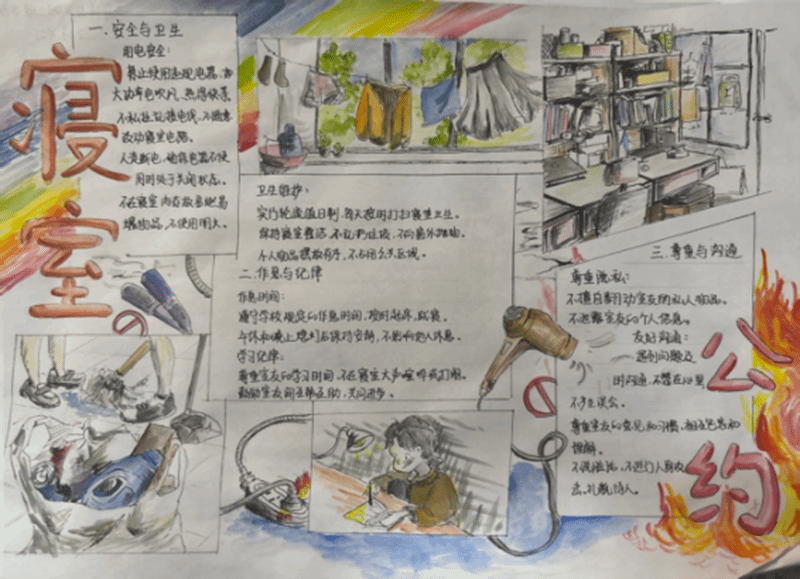 寝室
公约
一.安全与卫生
用电安全:
禁止使用违规电器,如
大功率电吹风、热得快等
不私拉乱接电线,不随意
改动寝室电路。
人走断电,确保电器不使
用时处于关闭状态。
不在寝室内存放易燃易
爆物品,不使用明火。
卫生维护:
实行轮流值日制,每天按时打扫寝室卫生。
保持寝室整洁,不乱扔垃圾,不向窗外抛物。
个人物品摆放有序,不占用公共区域。
二.作息与纪律
作息时间:
遵守学校规定的作息时间,按时起床,就寝。
午休和晚上熄灯后保持安静,不影响他人休息。
学习纪律:
尊重室友的学习时间,不在寝室大声喧哗或打闹。
鼓励室友间互帮互助,共同进步。
三.尊重与沟通
尊重隐私:
不擅自翻动室友的私人物品。
不泄露室友的个人信息。
友好沟通:
遇到问题及
时沟通,不憋在心里
不产生误会。
尊重室友的意见和习惯,相互包容和
理解。
不说脏话,不进行人身攻
击,礼貌待人。